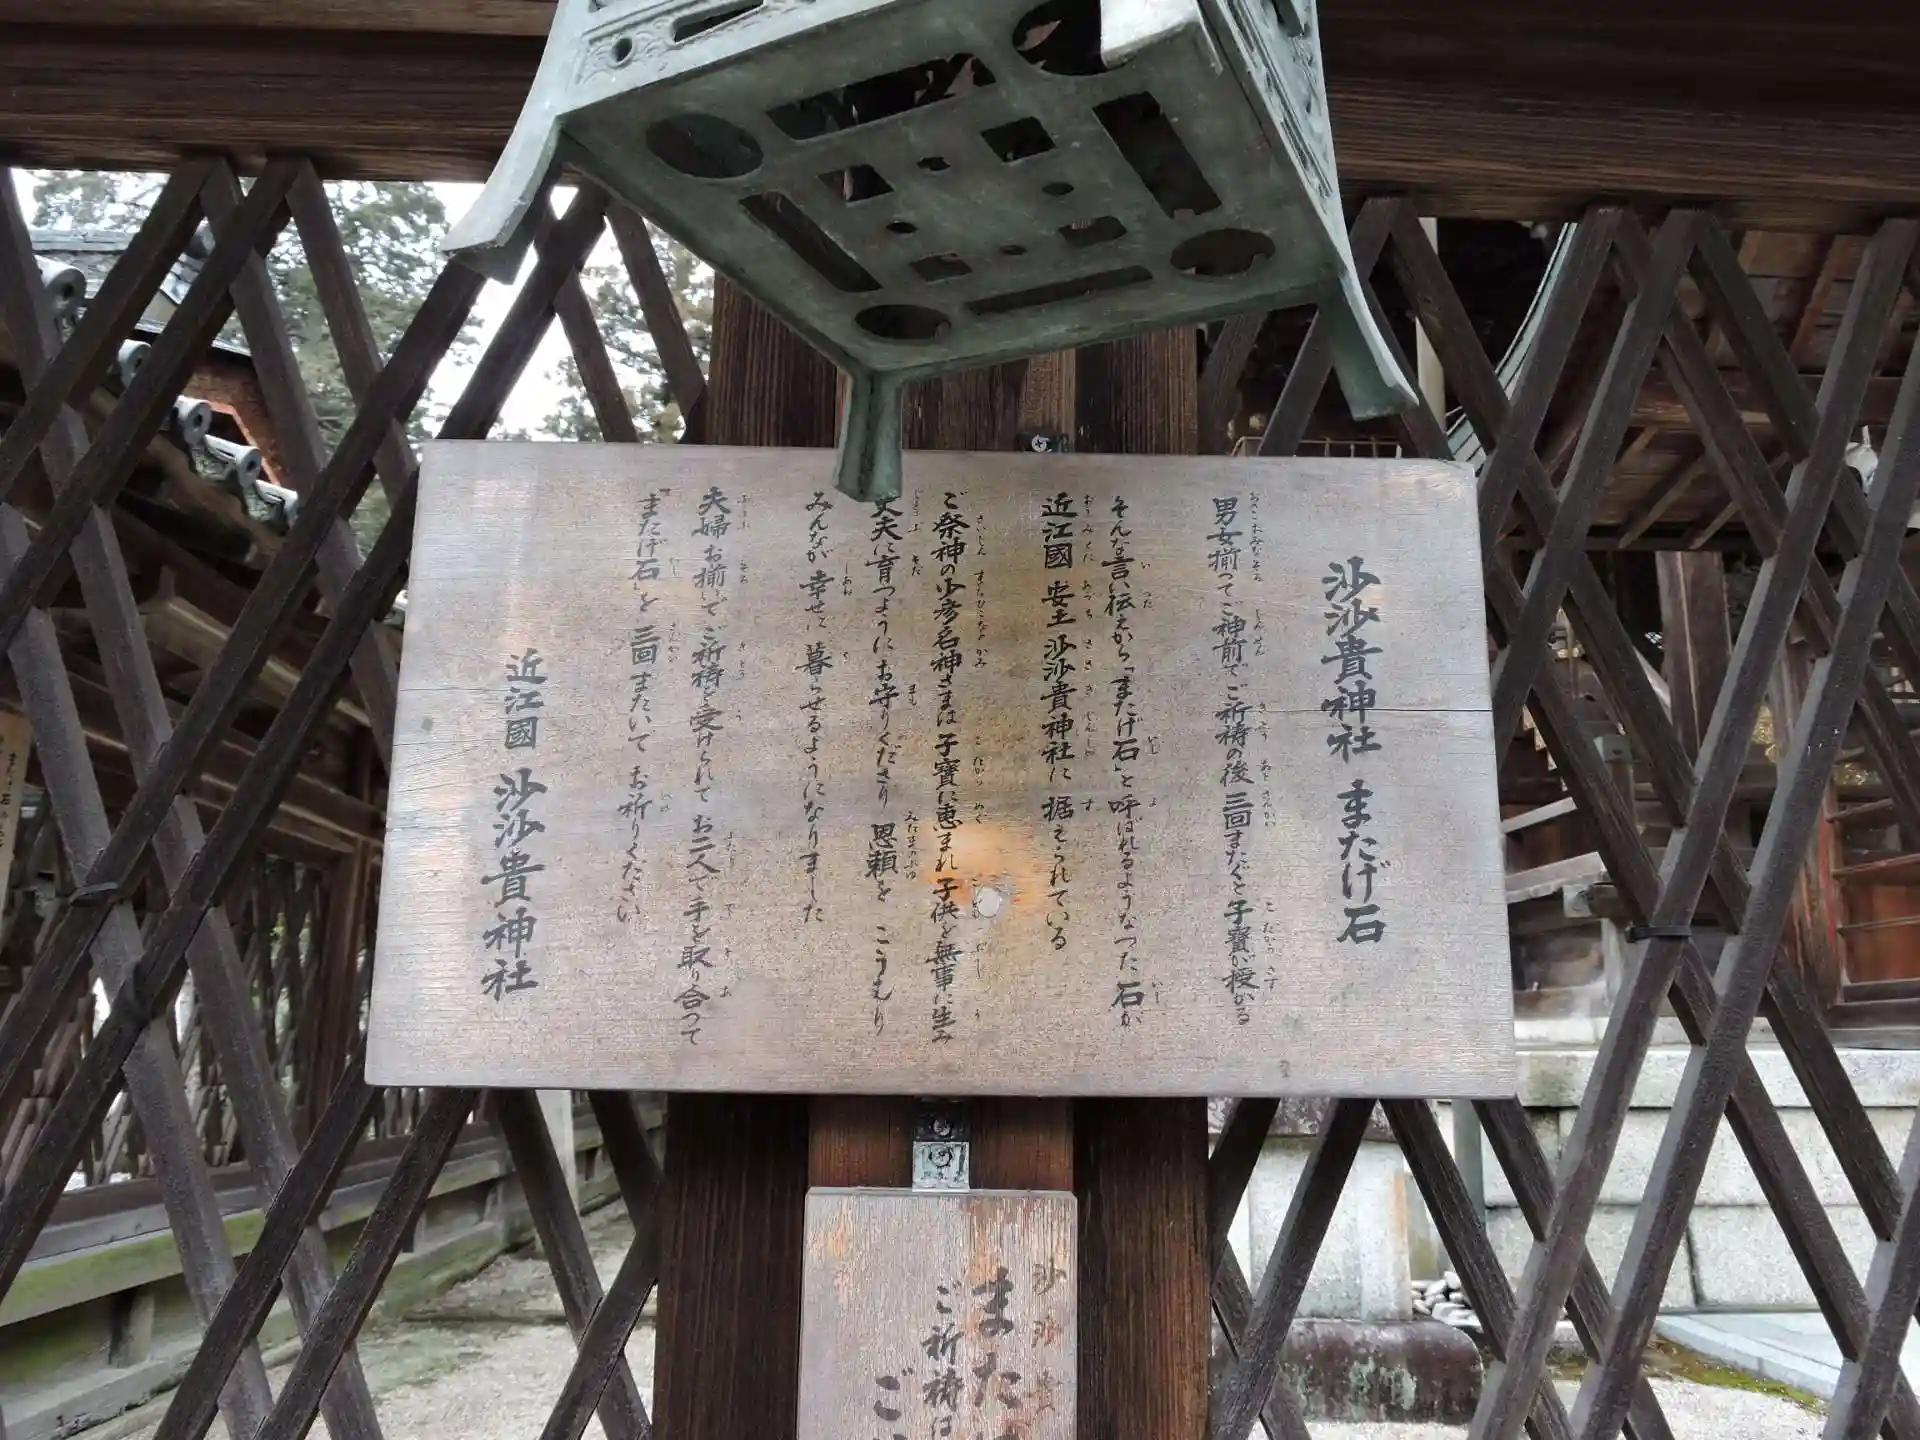 沙沙貴神社 またげ石
男女揃ってご神前でご祈祷の後 三回またぐと子寶が授かる
そんな言い伝えから「またげ石」と呼ばれるようなった石が
近江國 安土 沙沙貴神社に 据えられている
ご祭神の少彦名神さまは 子寶に恵まれ 子供を無事に生み
丈夫に育つように お守りくださり 恩頼を こうむり
みんなが 幸せに 暮らせるようになりました
夫婦お揃いで ご祈祷を受けられて お二人で手を取り合って
「またげ石」を 三回またいで お祈りください
近江國 沙沙貴神社
沙沙貴
また
ご祈祷は
ご